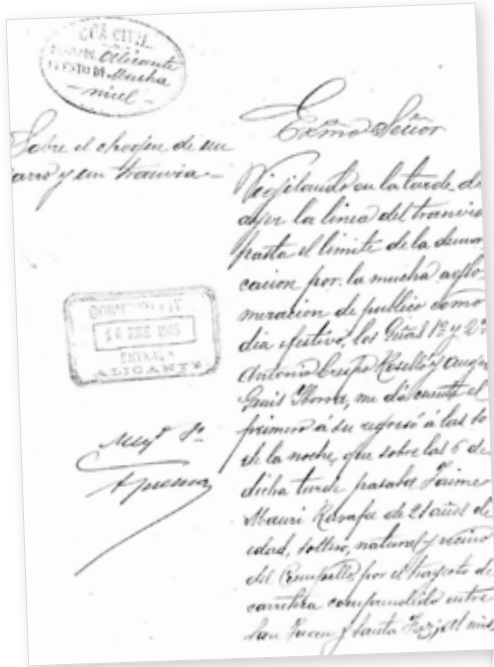 GUA CIVIL
Alicante
PUESTO DE Mucha
- miel -
Sobre el choque de un
carro y un tranvia -
GOBIERNO CIVIL
16 ENE 1905
ENTRADA
ALICANTE
Exmo Señor
Vigilando en la tarde de
ayer la linea del tranvia
hasta el limite de la demar
cacion por la mucha aglo
meracion de publico como
dia festivo, los Guas 1º y 2º
Antonio Crespo Roselló y
me dá cuenta el
primero á su regreso á las 10
de la noche, que sobre las 6 de
dicha tarde pasaba Jaime
de 21 años de
edad, soltero, natural y vecino
del Campello, por el trayecto de
carretera comprendido entre
San Juan y Santa Faz, el mis